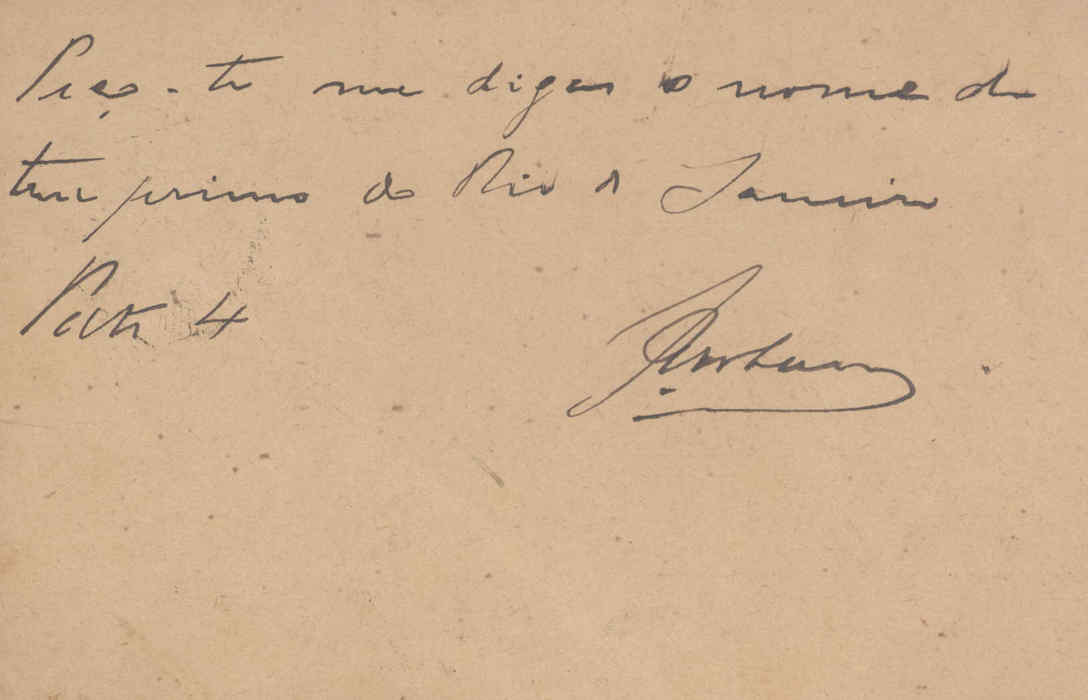 Peço-te me digas o nome do
teu primo do Rio de Janeiro
4